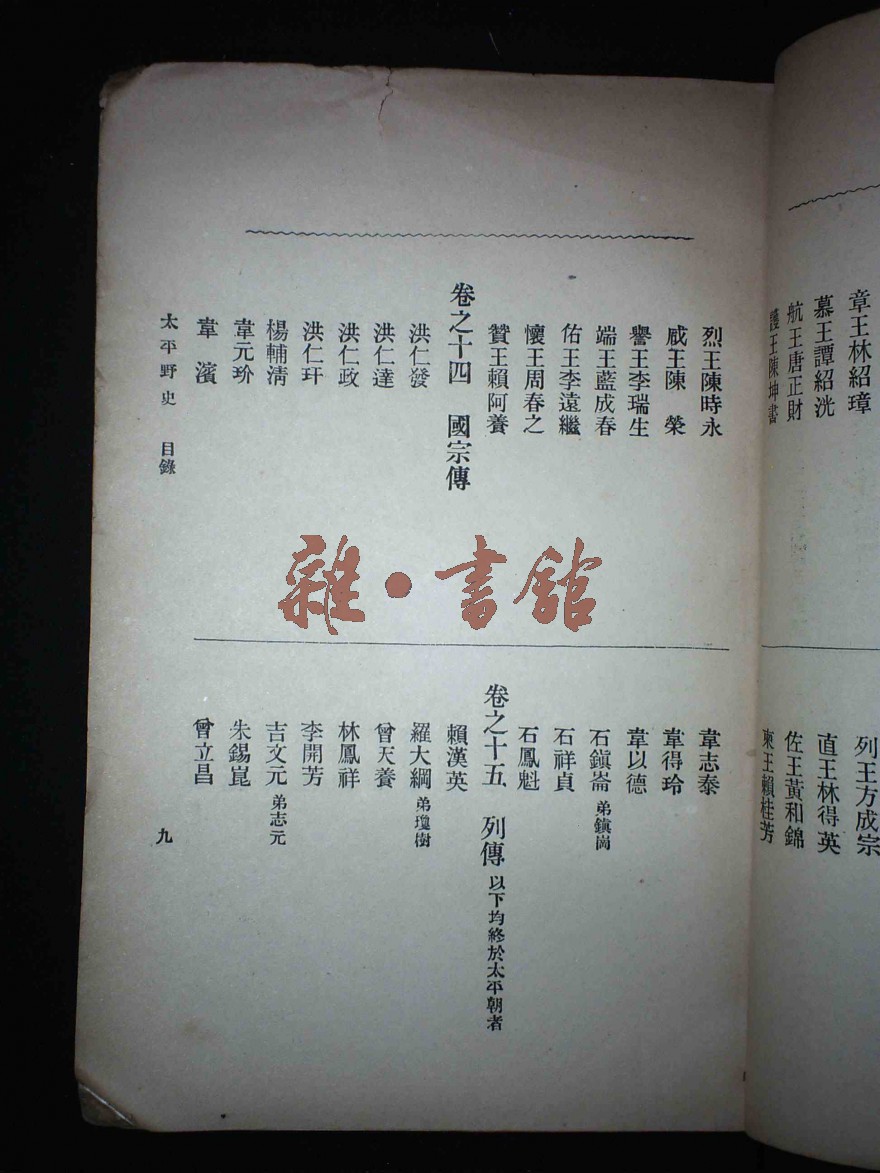 章王林紹璋
慕王譚紹洸
航王唐正財
護王陳坤書
列王方成宗
直王林得英
佐王黃和錦
東王賴桂芳
烈王陳時永
戚王陳榮
譽王李瑞生
端王藍成春
佑王李遠繼
懷王周春之
贊王賴阿養
卷之十四 國宗傳
洪仁發
洪仁達
洪仁政
洪仁玕
楊輔淸
韋元玠
韋濱
韋志泰
韋得玲
韋以德
石鎭崙 弟鎭崗
石祥貞
石鳳魁
卷之十五 列傳 以下均終於太平朝者
賴漢英
羅大綱 弟瓊樹
曾天養
林鳳祥
李開芳
吉文元 弟志元
朱錫崑
曾立昌
太平野史 目錄
九
雜·書館